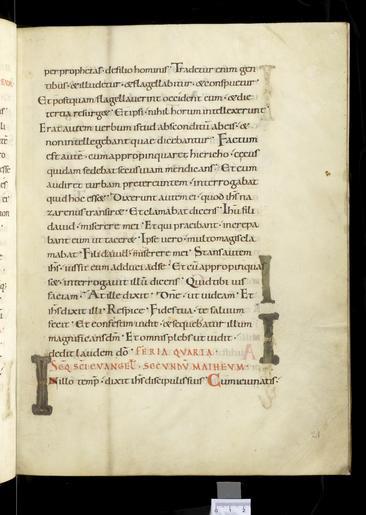 per prophetas · de filio hominis · Tradetur enim gen
tibus · & illudetur · & flagellabitur · & conspuetur ·
Et postquam flagellaverint occident eum · & die
tertia resurg& · Et ipsi nihil horum intellexerunt ·
Erat autem verbum istud absconditū ab eis · &
non intellegebant quae dicebantur · Factum
est autē · cum appropinquar& hiericho · cęcus
quidam sedebat secus viam mendicans · Et cum
audir& turbam pr&ereuntem · interrogabat
quid hoc ess& · Dixerunt autem ei · quod ihs na
zarenus transir& · Et clamabat dicens · Ihu fili
david · miserere mei · Et qui praeibant · increpa
bant eum ut tacer& · Ipse vero · multo magis cla
mabat · Fili david · miserere mei · Stans autem
ihs · iussit eum adduci ad se · Et cū appropinquas
s& · interrogavit illū dicens · Quid tibi vis
faciam · At ille dixit · Dnē · ut videam · Et
ihs dixit illi · Respice · Fides tua · te salvum
fecit · Et confestim vidit · & sequebatur illum
magnificans dm̄ · Et omnis plebs ut vidit ·
dedit laudem dō · FERIA QUARTA
SEQ SCI EUANGEL SECUNDUM MATHEUM
In illo temp · dixit ihs discipulis suis · Cum ieiunatis ·